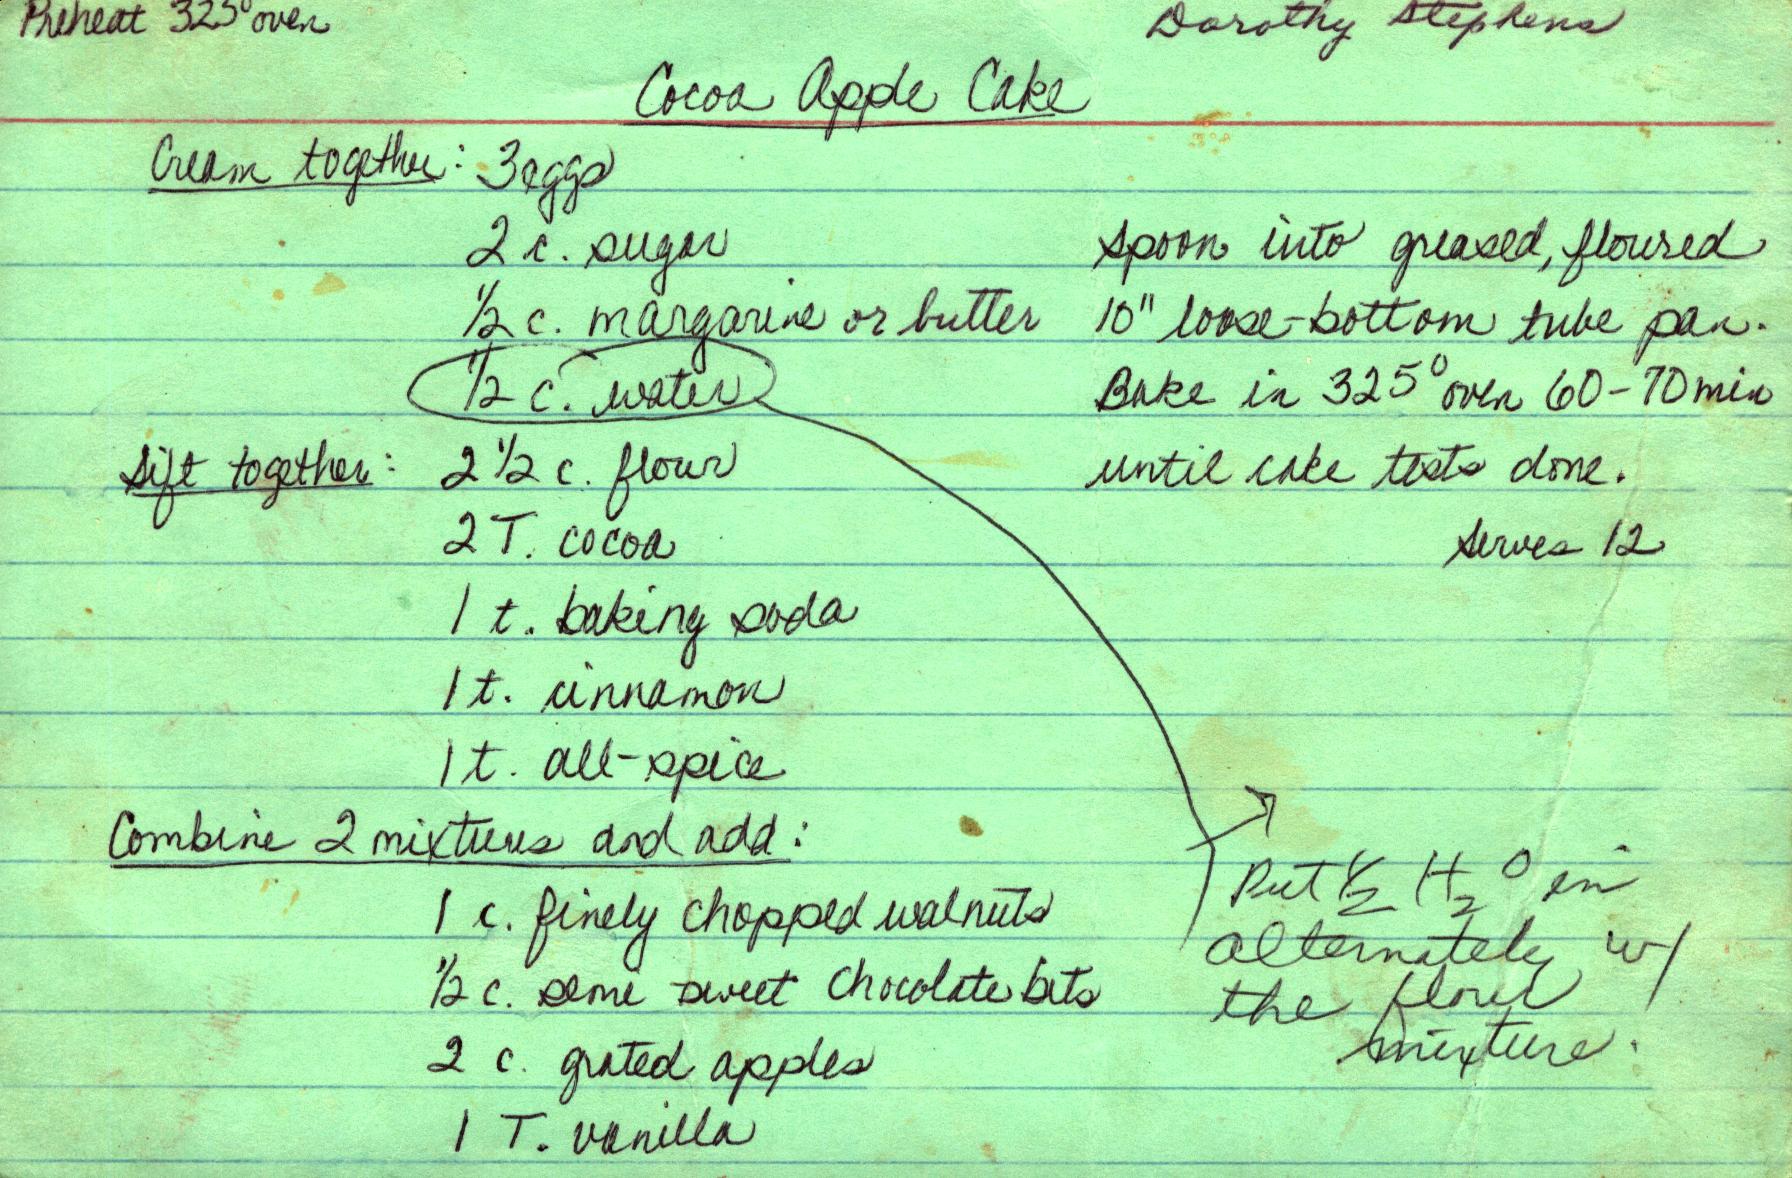 Preheat 325° oven
Dorothy Stephens
Cocoa Apple Cake
Cream together: 3 eggs
2 c. sugar
1/2 c. margarine or butter
1/2 c. water
Sift together: 2 1/2 c. flour
2 T. cocoa
1 t. baking soda
1 t. cinnamon
1 t. all-spice
Combine 2 mixtures and add:
1 c. finely chopped walnuts
1/2 c. seme sweet chocolate bits
2 c. grated apples
1 T. vanilla
spoon into greased, floured
10" loose-bottom tube pan.
Bake in 325° oven 60-70 min
until cake tests done.
Serves 12
Put 1/2 H2O in
alternately w/
the flour
mixture.